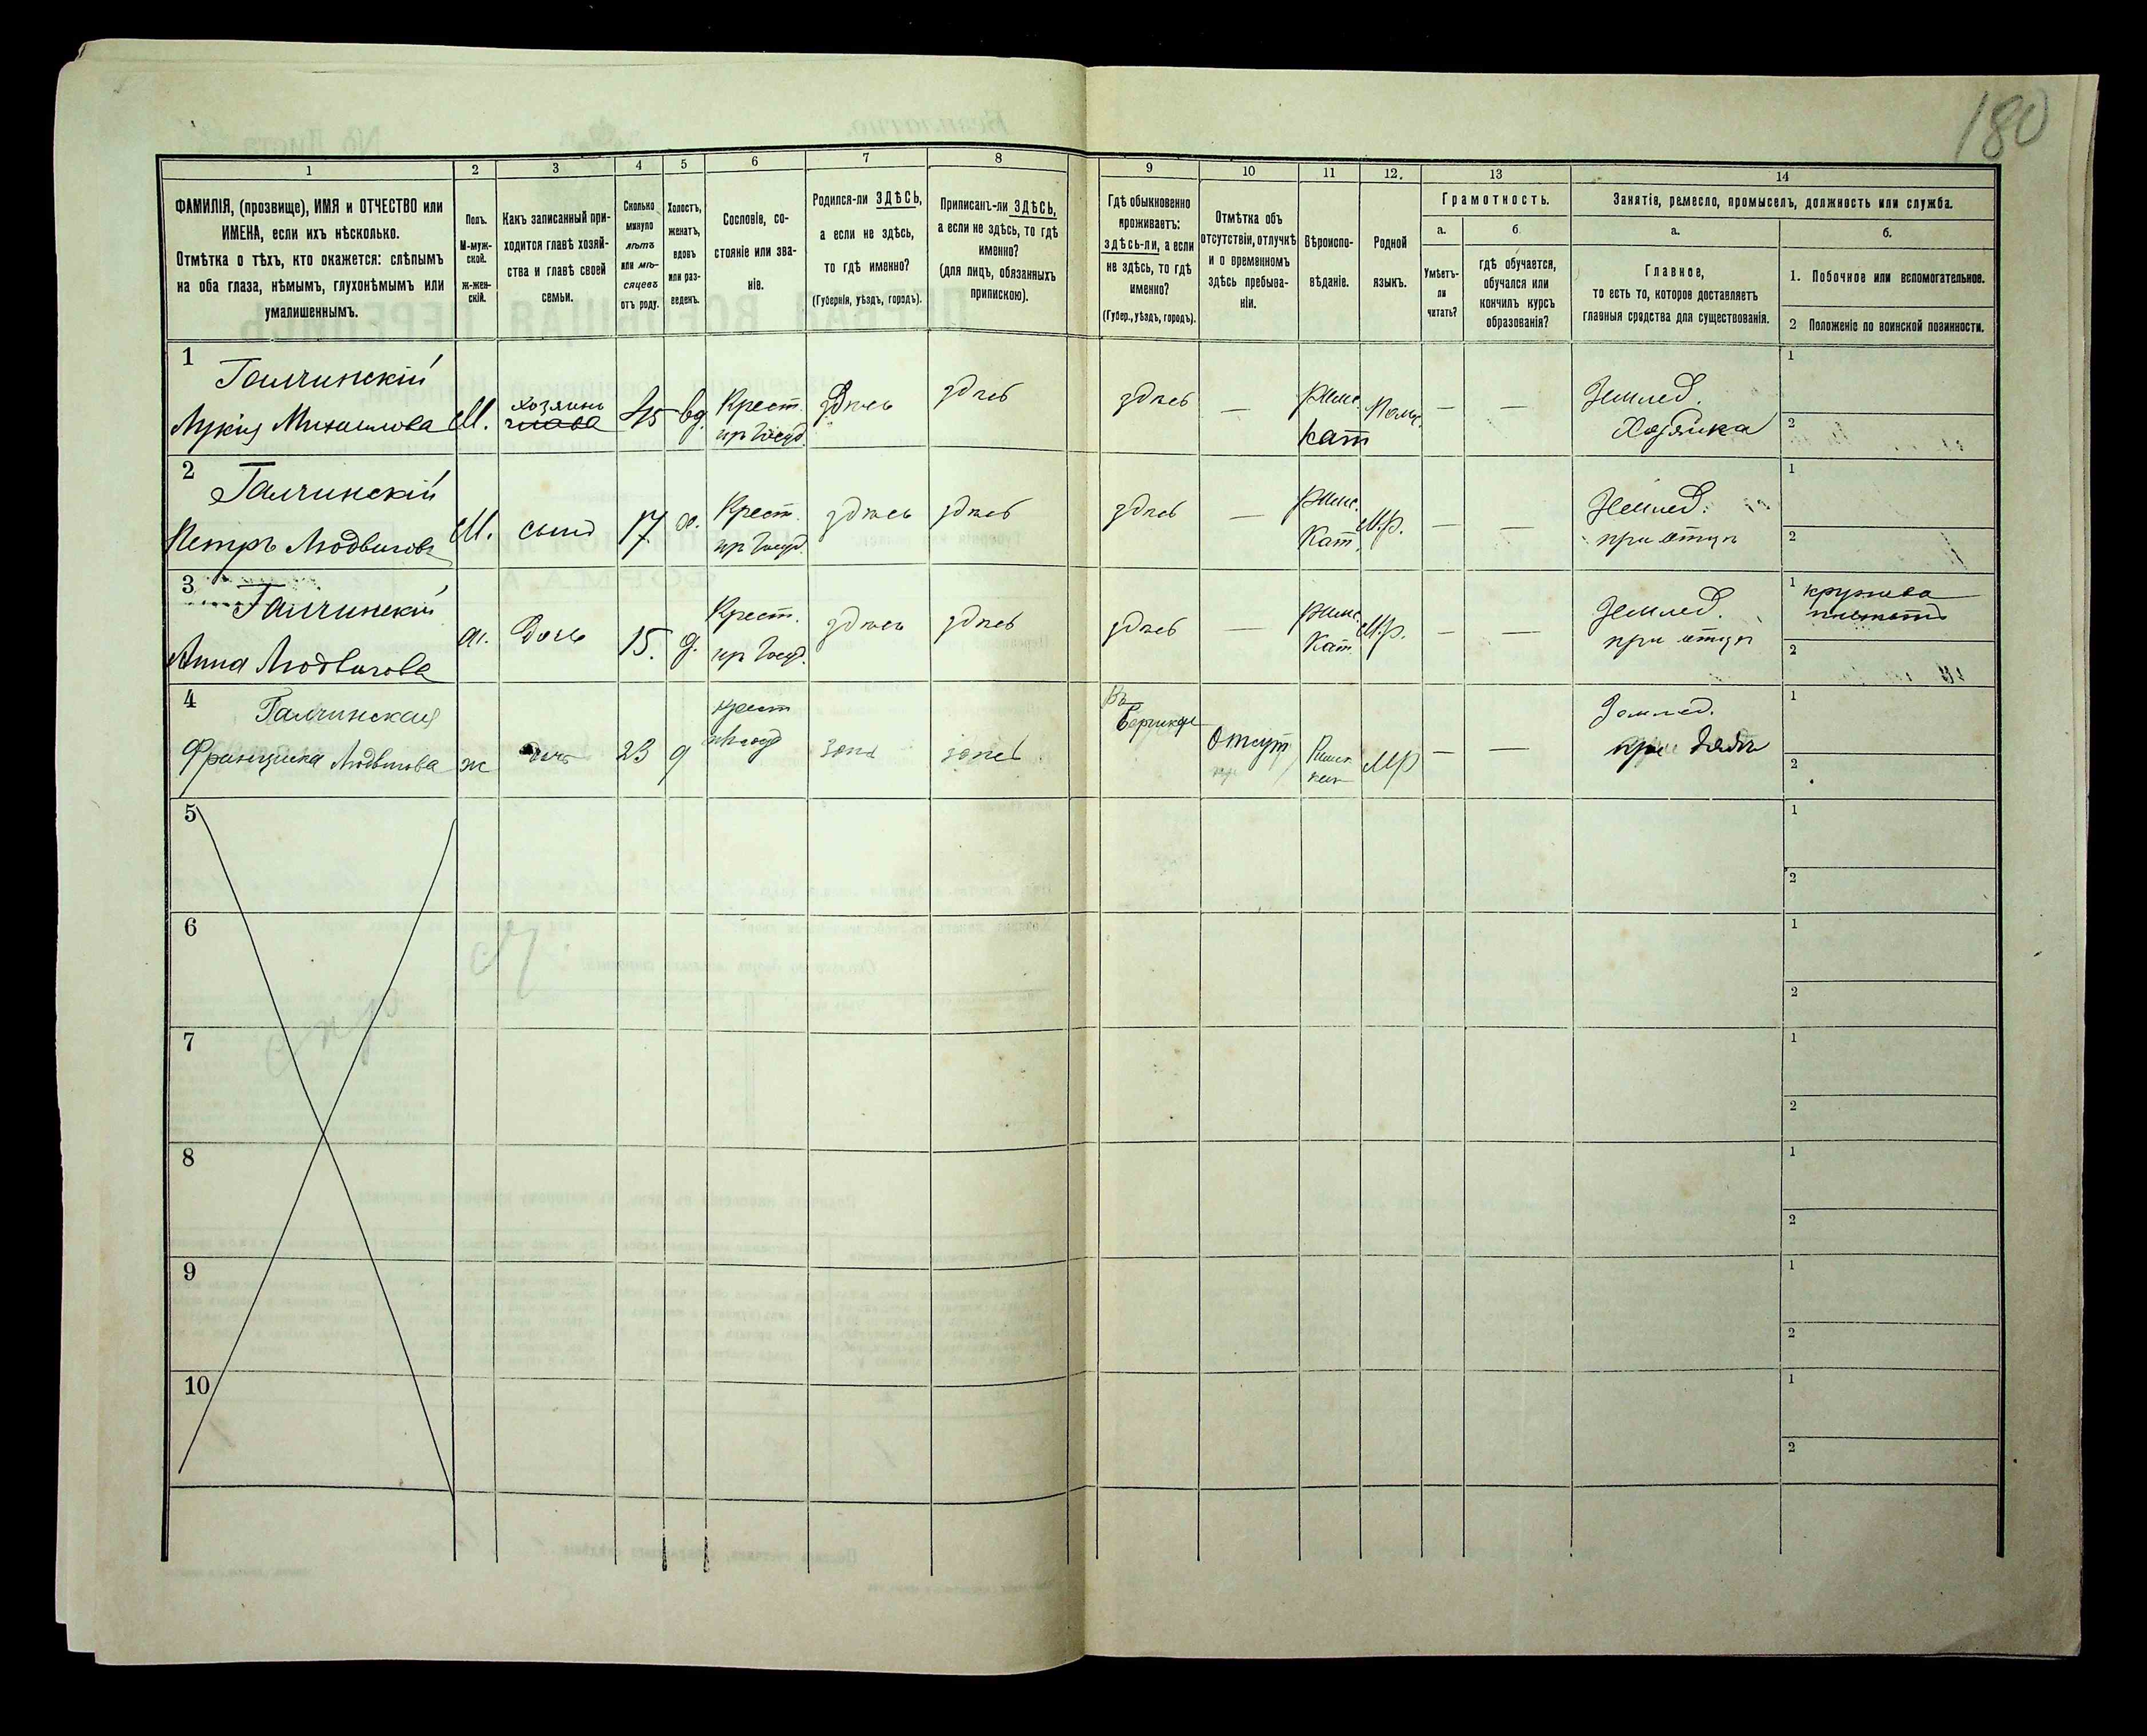 180
1
2
3
4
5
6
7
8
9
10
11
12.
13
14
ФАМИЛІЯ, (прозвище), ИМЯ и ОТЧЕСТВО или
ИМЕНА, если ихъ нѣсколько.
Отмѣтка о тѣхъ, кто окажется: слѣпымъ
на оба глаза, нѣмымъ, глухонѣмымъ или
умалишеннымъ.
Полъ.
М-муж-
ской.
ж-жен-
скій.
Какъ записанный при-
ходится главѣ хозяй-
ства и главѣ своей
семьи.
Сколько
минуло
лѣтъ
или мѣ-
сяцевъ
отъ роду.
Холостъ,
женатъ,
вдовъ
или раз-
веденъ.
Сословіе, со-
стояніе или зва-
ніе.
Родился-ли ЗДѢСЬ,
а если не здѣсь,
то гдѣ именно?
(Губернія, уѣздъ, городъ).
Приписанъ-ли ЗДѢСЬ,
а если не здѣсь, то гдѣ
именно?
(для лицъ, обязанныхъ
припискою).
Гдѣ обыкновенно
проживаетъ:
здѣсь-ли, а если
не здѣсь, то гдѣ
именно?
(Губер., уѣздъ, городъ).
Отмѣтка объ
отсутствіи, отлучкѣ
и о временномъ
здѣсь пребыва-
ніи.
Вѣроиспо-
вѣданіе.
Родной
языкъ.
Грамотность.
а.
б.
Умѣетъ-
ли
читать?
гдѣ обучается,
обучался или
кончилъ курсъ
образованія?
Занятія, ремесло, промыселъ, должность или служба.
а.
б.
Главное,
то есть то, которое доставляетъ
главныя средства для существованія.
1. Побочное или вспомогательное.
2 Положеніе по воинской повинности.
1
Галчинскій
Лукія Михаилова
М.
хозяинъ
глава
45
вд.
Крест.
пр Госуд.
здѣсь
здѣсь
здѣсь
—
Римс.
кат
Польс.
—
—
Землед.
Хозяйка
1
2
2
Галчинскій
Петръ Людвиговъ
М.
сынъ
17
х.
Крест.
пр Госуд.
здѣсь
здѣсь
здѣсь
—
Римс.
Кат.
М.р.
—
—
Землед.
при отцѣ
1
2
3
Галчинскій
Анна Людвигова
ж.
дочь
15.
д.
Крест.
пр Госуд.
здѣсь
здѣсь
здѣсь
—
Римс.
Кат.
М.р.
—
—
Землед.
при отцѣ
1 кружева
плететъ
2
4
Галчинская
Францишка Людвигова
ж
дочь
23
д
крест
здѣсь
здѣсь
Въ
Отсут
Римск
кат
МР
—
—
Землед.
при дядѣ
1
2
5
1
2
6
1
2
7
1
2
8
1
2
9
1
2
10
1
2